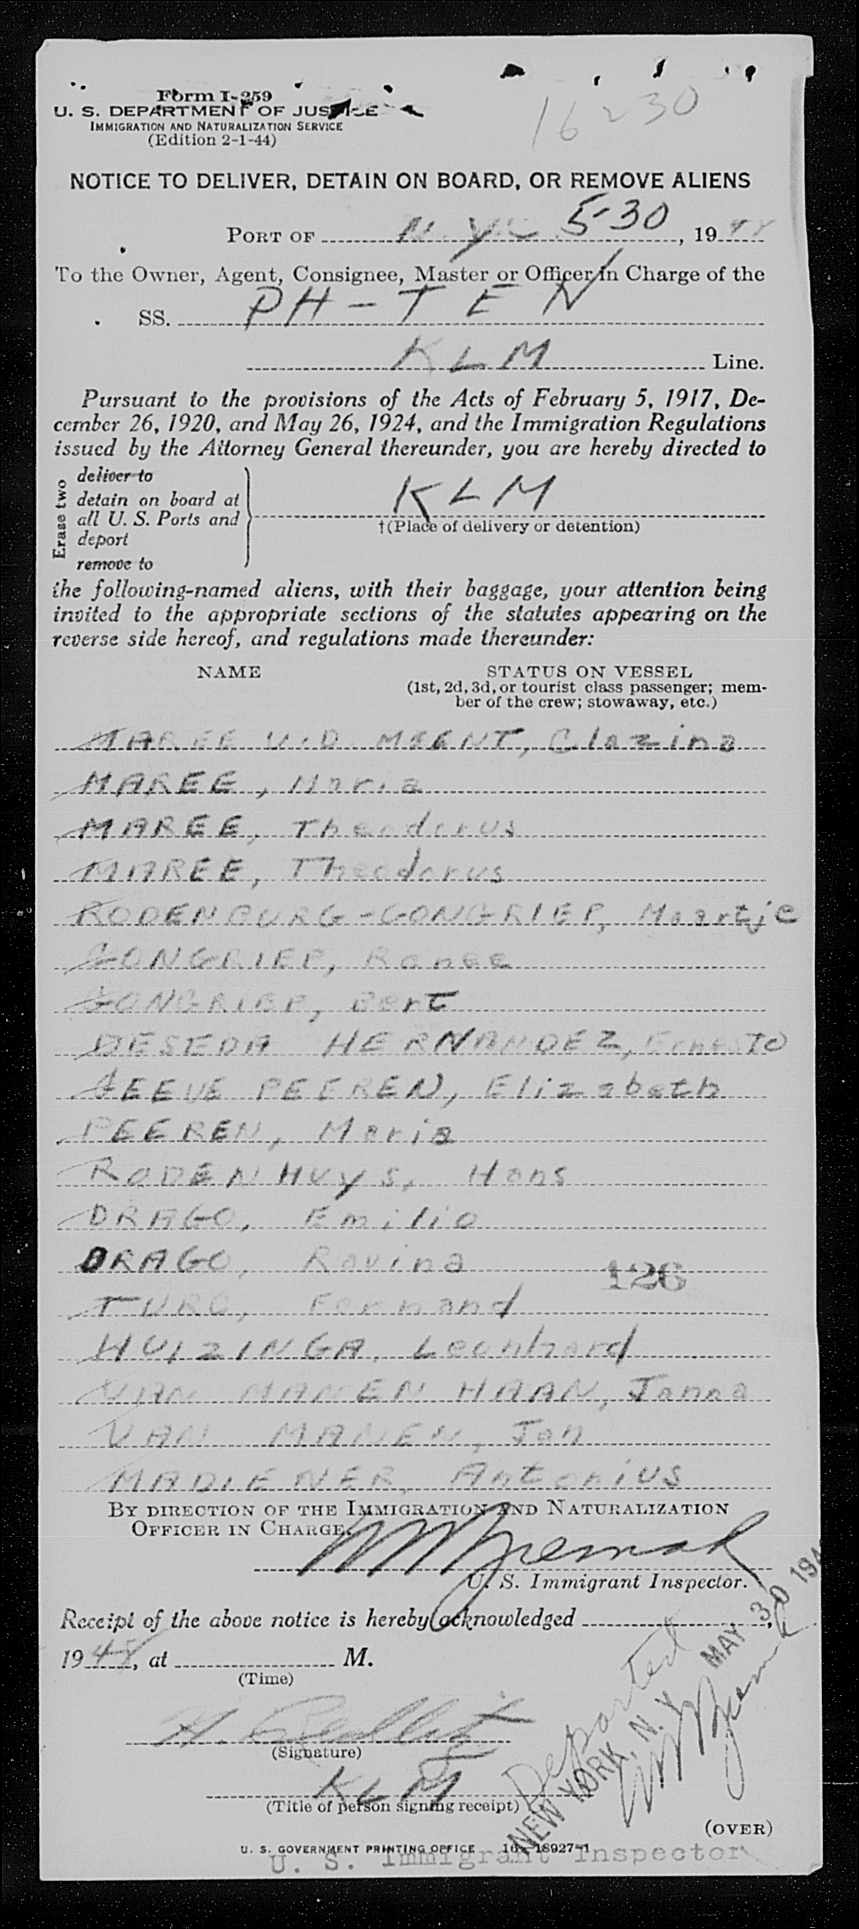 Form I-259
16230
U. S. DEPARTMENT OF JUSTICE
IMMIGRATION AND NATURALIZATION SERVICE
(Edition 2-1-44)
NOTICE TO DELIVER, DETAIN ON BOARD, OR REMOVE ALIENS
PORT OF N. Y. C 5-30, 1948
To the Owner, Agent, Consignee, Master or Officer in Charge of the
SS. PH-TEN
KLM Line.
Pursuant to the provisions of the Acts of February 5, 1917, De-
cember 26, 1920, and May 26, 1924, and the Immigration Regulations
issued by the Attorney General thereunder, you are hereby directed to
Erase two
deliver to
detain on board at
all U. S. Ports and
deport
remove to
KLM
†(Place of delivery or detention)
the following-named aliens, with their baggage, your attention being
invited to the appropriate sections of the statutes appearing on the
reverse side hereof, and regulations made thereunder:
NAME STATUS ON VESSEL
(1st, 2d, 3d, or tourist class passenger; mem-
ber of the crew; stowaway, etc.)
MAREE V.D. MEENT, Clazina
MAREE, Maria
MAREE, Theodorus
MAREE, Theodorus
RODENBURG-GONGRIEP, Maartje
GONGRIEP, Renee
GONGRIEP, Bert
DESEDA HERNANDEZ, Ernesto
PEEREN, Elizabeth
PEEREN, Maria
RODENHUYS, Hans
DRAGO, Emilio
DRAGO, Rovina
126
TURO, Fernand
HUIZINGA, Leonhard
VAN MANEN HAAN, Janna
VAN MANEN, Jan
MADIENER, Antonius
BY DIRECTION OF THE IMMIGRATION AND NATURALIZATION
OFFICER IN CHARGE.
U. S. Immigrant Inspector.
Receipt of the above notice is hereby acknowledged
1948, at M.
(Time)
(Signature)
KLM
(Title of person signing receipt)
Deported
NEW YORK, N. Y. MAY 30 194
(OVER)
U. S. GOVERNMENT PRINTING OFFICE 16-18927-1
U. S. Immigrant Inspector